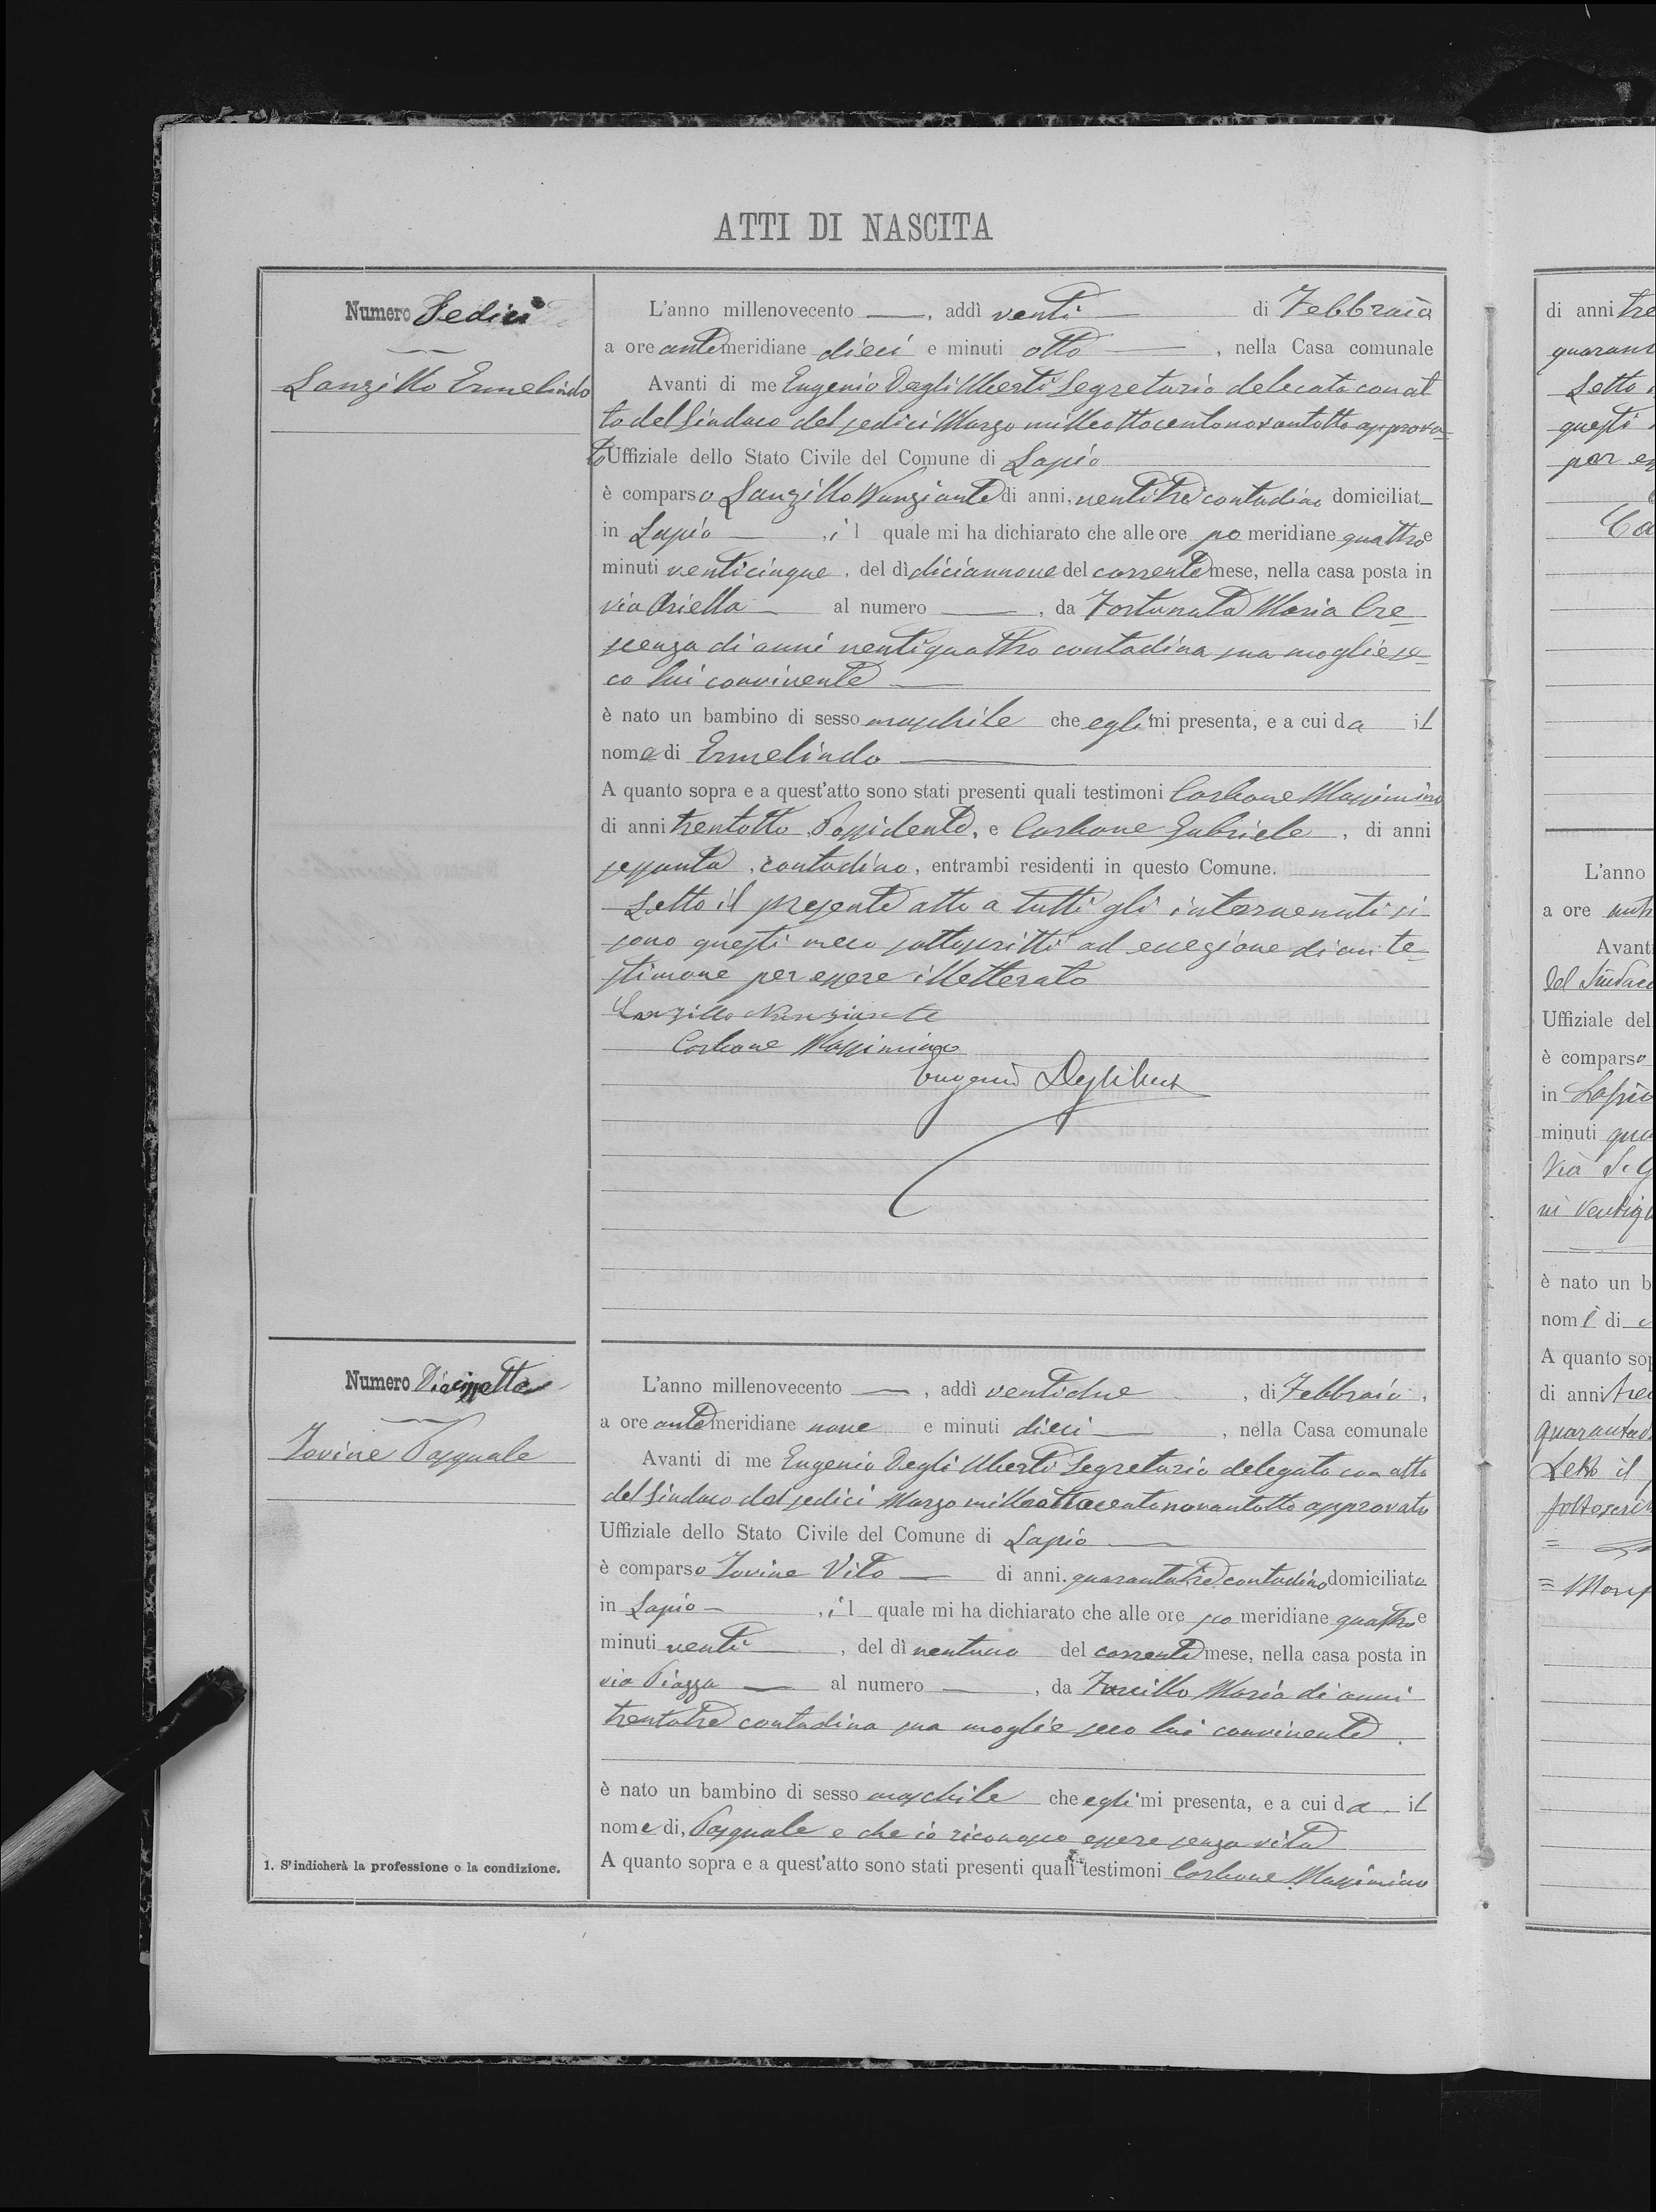 ATTI DI NASCITA
Numero Sedici
Lanzillo Ermelindo
L'anno millenovecento —, addì venti — di Febbraio
a ore antemeridiane dieci e minuti otto —, nella Casa comunale
Avanti di me Eugenio Degli Uberti Segretario delecato con at
to del Sindaco del sedici Marzo milleottocentonovantotto approva-
to Uffiziale dello Stato Civile del Comune di Lapio
è comparso Lanzillo Nunziante di anni, ventitre contadino domiciliat
in Lapio —, il quale mi ha dichiarato che alle ore pomeridiane quattro e
minuti venticinque, del dì diciannove del corrente mese, nella casa posta in
via Ariella — al numero —, da Fortunata Maria Cre-
scenza di anni ventiquattro contadina sua moglie se-
co lui convivente —
è nato un bambino di sesso maschile che egli mi presenta, e a cui da il
nome di Ermelindo —
A quanto sopra e a quest'atto sono stati presenti quali testimoni Carbone Massimino
di anni trentotto, Possidente, e Carbone Gabriele, di anni
sessanta, contadino, entrambi residenti in questo Comune.
Letto il presente atto a tutti gli intervenuti si
sono questi meco sottoscritti ad eccezione di un te-
stimone per essere illetterato
Lanzillo Nunziante
Carbone Massimino
Eugenio Degliuberti
Numero Diciassette
Iovine Pasquale
L'anno millenovecento —, addì ventidue, di Febbraio,
a ore antemeridiane nove e minuti dieci —, nella Casa comunale
Avanti di me Eugenio Degli Uberti Segretario delegato con atto
del Sindaco del sedici Marzo milleottocentonovantotto approvato
Uffiziale dello Stato Civile del Comune di Lapio —
è comparso Iovine Vito — di anni. quarantatre, contadino domiciliato
in Lapio —, il quale mi ha dichiarato che alle ore pomeridiane quattro e
minuti venti —, del dì ventuno del corrente mese, nella casa posta in
via Piazza — al numero —, da Maria di anni
trentatre contadina sua moglie seco lui convivente.
è nato un bambino di sesso maschile che egli mi presenta, e a cui da il
nome di, Pasquale e che io riconosco essere senza vita
A quanto sopra e a quest'atto sono stati presenti quali testimoni Carbone Massimino
1. S'indicherà la professione o la condizione.
di anni tre
quarant
Letto
questi
per es
Ca
L'anno
a ore ant
Avanti
del Sindaco
Uffiziale del
è comparso
in Lapio
minuti qua
Via S. G
ni Ventiqu
è nato un b
nome di
A quanto sop
di anni tre
quarantad
Letto il
sottoscrit